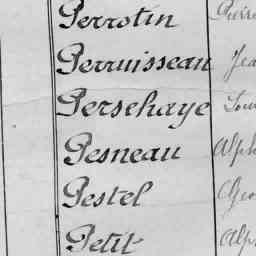 Perrotin Pierre
Perruisseau Jea
Persehaye Lou
Pesneau Alph
Pestel Geo
Petit Alp